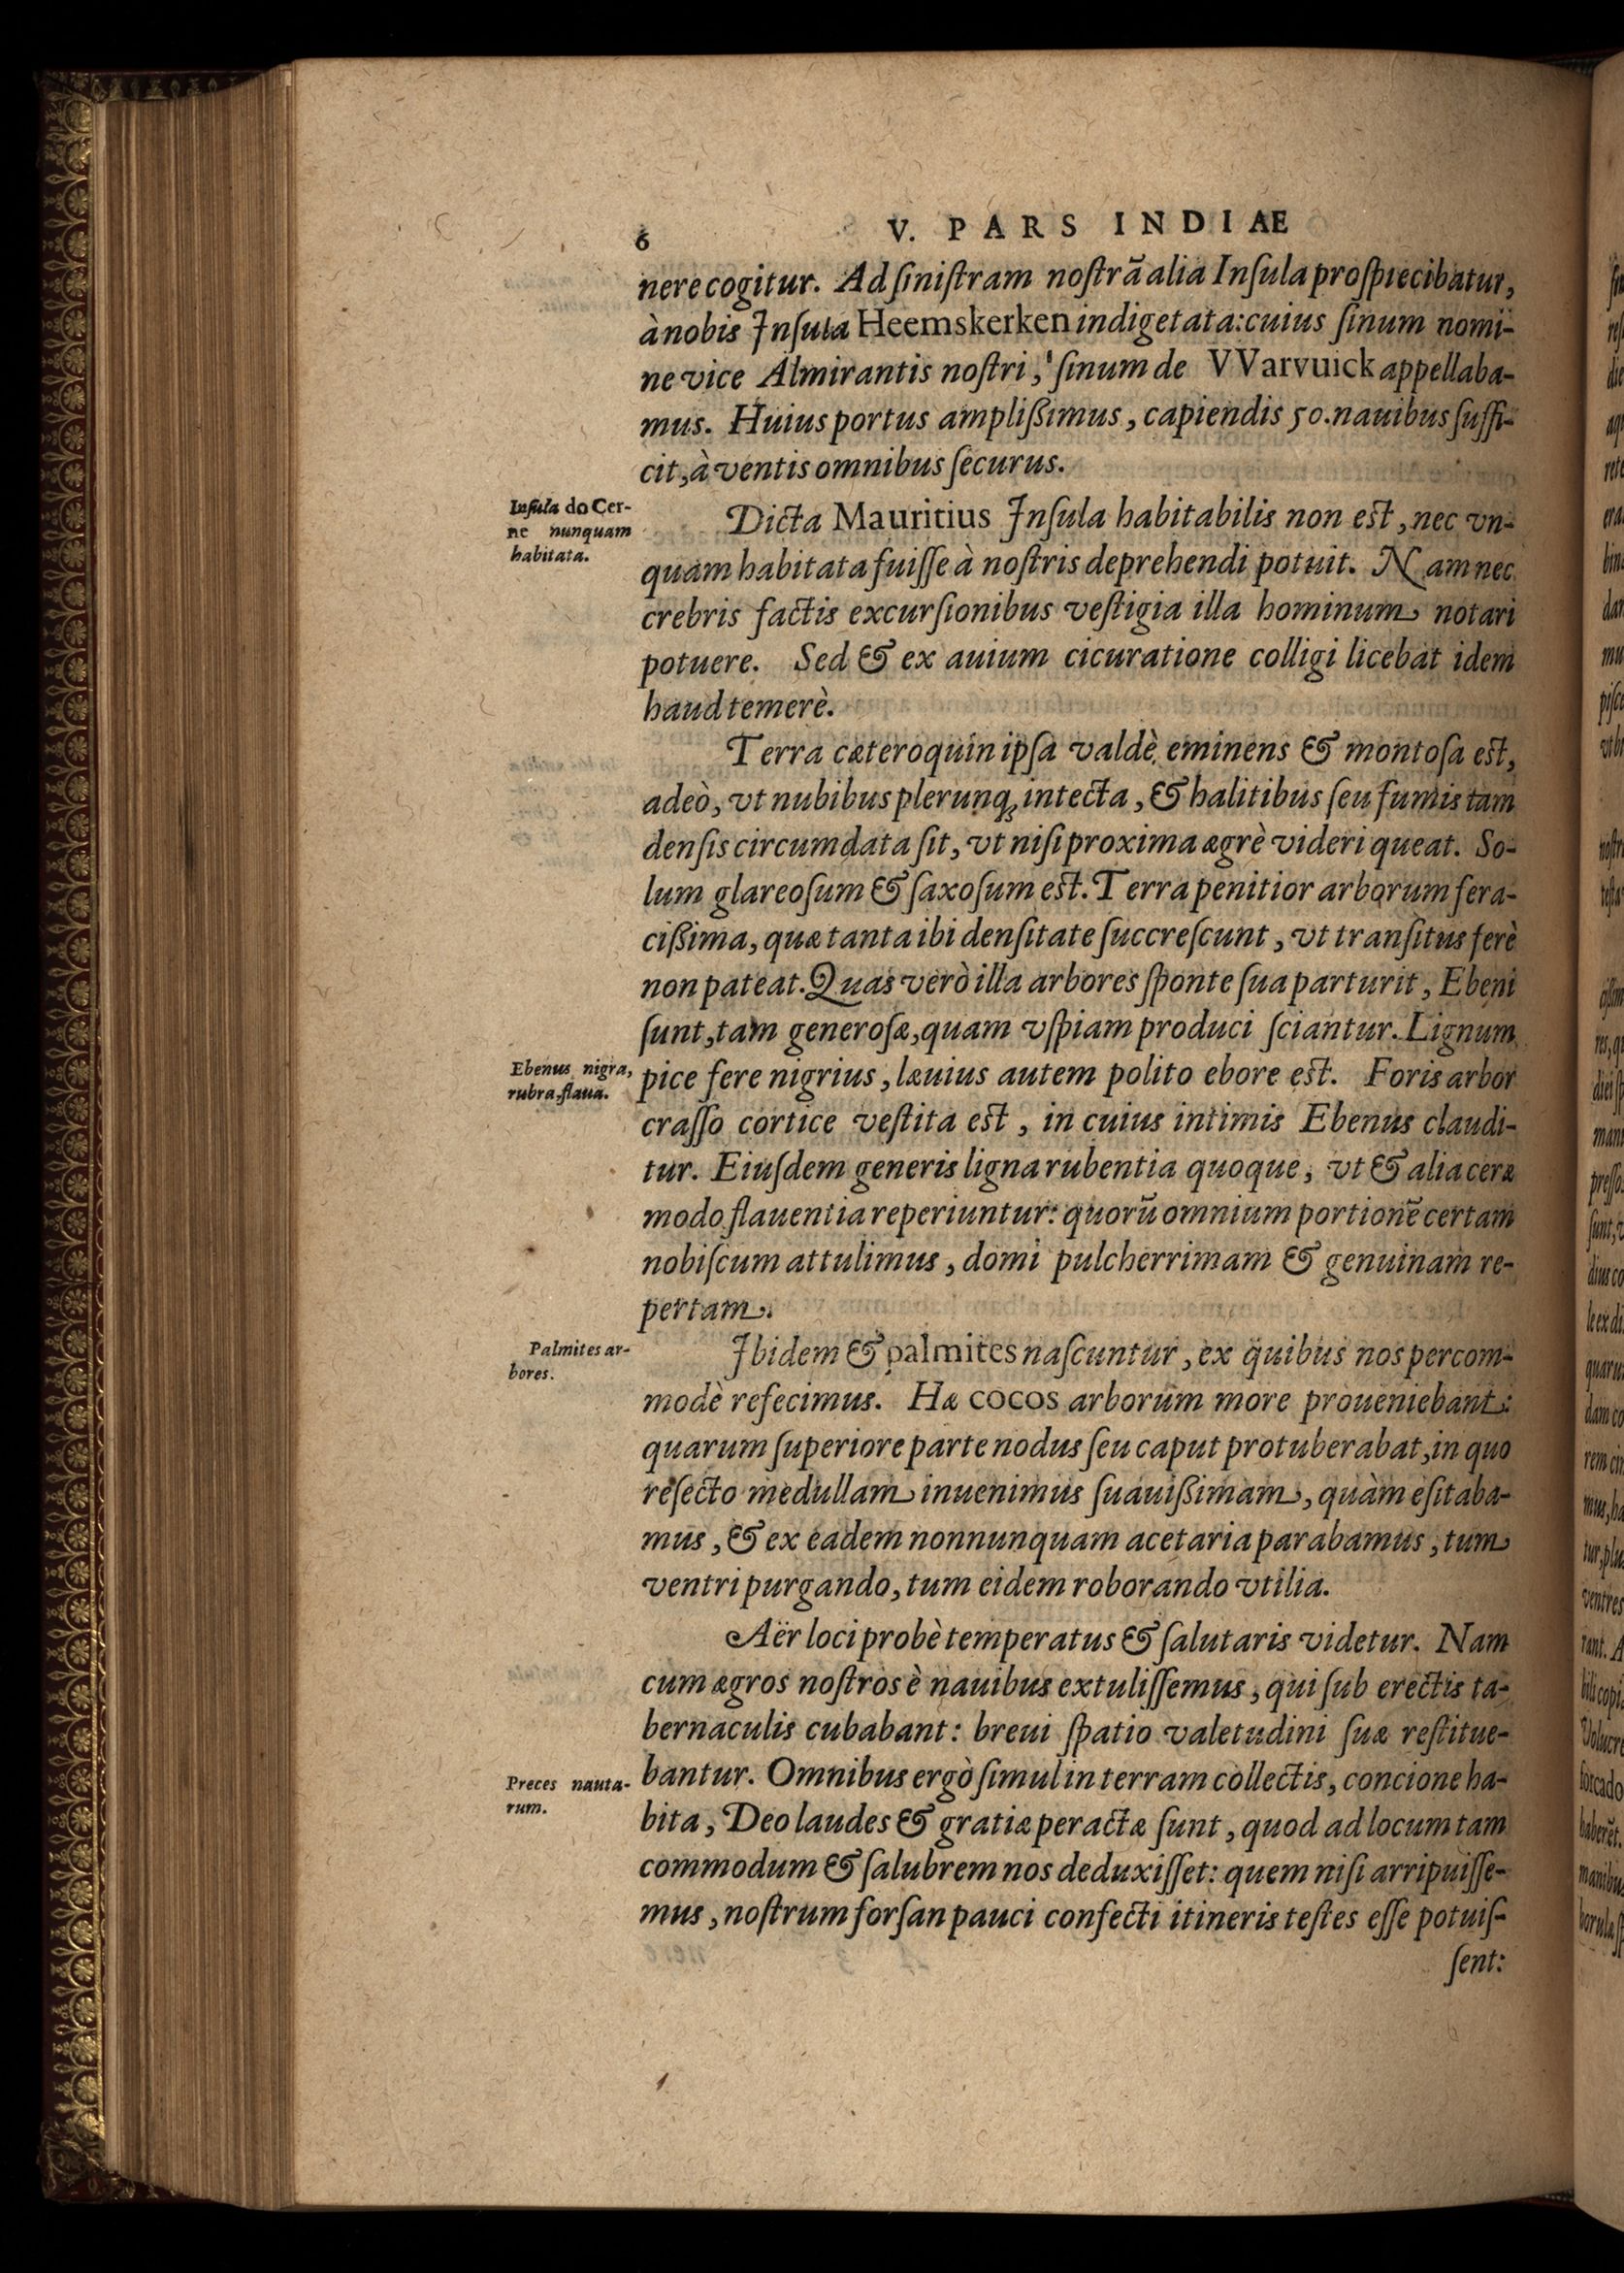 6
V. PARS INDIAE
nere cogitur. Ad ſiniſtram noſtrã alia Inſula proſpiecibatur,
à nobis Inſula Heemskerken indigetata: cuius ſinum nomi-
ne vice Almirantis noſtri, ſinum de VVarvuick appellaba-
mus. Huius portus ampliſsimus, capiendis 50. nauibus ſuffi-
cit, à ventis omnibus ſecurus.
Inſula do Cer-
ne nunquam
habitata.
Dicta Mauritius Inſula habitabilis non eſt, nec vn-
quam habitata fuiſſe à noſtris deprehendi potuit. Nam nec
crebris factis excurſionibus veſtigia illa hominum notari
potuere. Sed & ex auium cicuratione colligi licebat idem
haud temerè.
Terra cæteroquin ipſa valdè eminens & montoſa eſt,
adeò, vt nubibus plerunq; intecta, & halitibus ſeu fumis tam
denſis circumdata ſit, vt niſi proxima ægrè videri queat. So-
lum glareoſum & ſaxoſum eſt. Terra penitior arborum fera-
ciſsima, quæ tanta ibi denſitate ſuccreſcunt, vt tranſitus ferè
non pateat. Quas verò illa arbores ſponte ſua parturit, Ebeni
ſunt, tam generoſæ, quam vſpiam produci ſciantur. Lignum
Ebenus nigra,
rubra, flaua.
pice fere nigrius, læuius autem polito ebore eſt. Foris arbor
craſſo cortice veſtita eſt, in cuius intimis Ebenus claudi-
tur. Eiuſdem generis ligna rubentia quoque, vt & alia ceræ
modo flauentia reperiuntur: quorũ omnium portionẽ certam
nobiſcum attulimus, domi pulcherrimam & genuinam re-
pertam.
Palmites ar-
bores.
Ibidem & palmites naſcuntur, ex quibus nos percom-
modè refecimus. Hæ cocos arborum more proueniebant:
quarum ſuperiore parte nodus ſeu caput protuberabat, in quo
reſecto medullam inuenimus ſuauiſsimam, quàm eſitaba-
mus, & ex eadem nonnunquam acetaria parabamus, tum
ventri purgando, tum eidem roborando vtilia.
Aër loci probè temperatus & ſalutaris videtur. Nam
cum ægros noſtros è nauibus extuliſſemus, qui ſub erectis ta-
bernaculis cubabant: breui ſpatio valetudini ſuæ reſtitue-
Preces nauta-
rum.
bantur. Omnibus ergò ſimul in terram collectis, concione ha-
bita, Deo laudes & gratiæ peractæ ſunt, quod ad locum tam
commodum & ſalubrem nos deduxiſſet: quem niſi arripuiſſe-
mus, noſtrum forſan pauci confecti itineris teſtes eſſe potuiſ-
ſent: